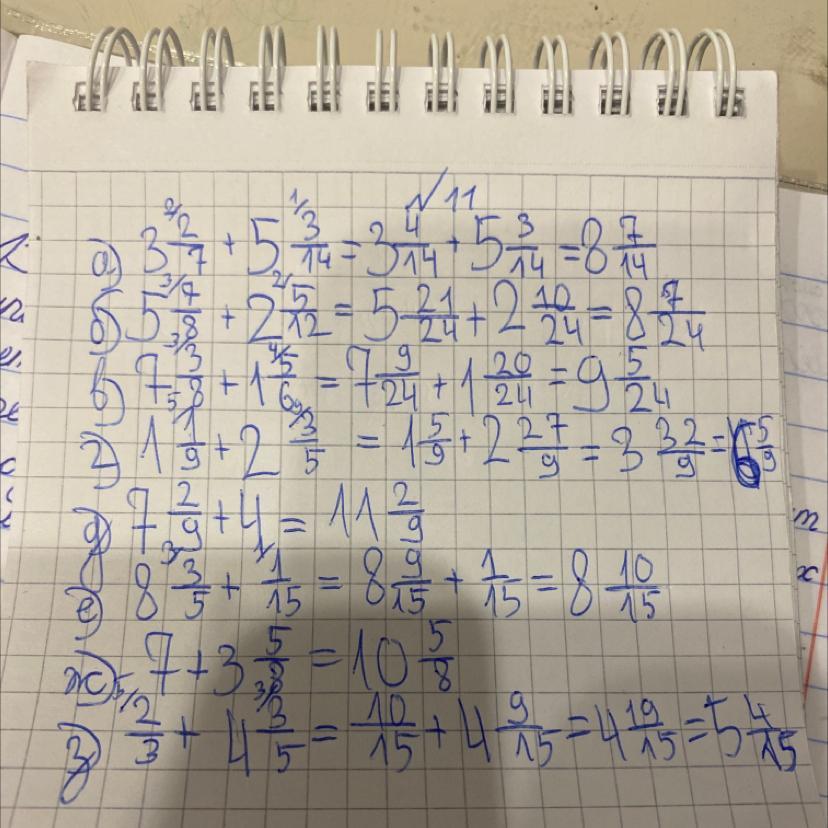 √ 11
а) 3 2/7 + 5 3/14 = 3 4/14 + 5 3/14 = 8 7/14
б) 5 7/8 + 2 5/12 = 5 21/24 + 2 10/24 = 8 7/24
в) 7 3/8 + 1 5/6 = 7 9/24 + 1 20/24 = 9 5/24
г) 1 1/9 + 2 3/5 = 1 5/9 + 2 27/9 = 3 32/9 = 6 5/9
д) 7 2/9 + 4 = 11 2/9
е) 8 3/5 + 1/15 = 8 9/15 + 1/15 = 8 10/15
ж) 7 + 3 5/8 = 10 5/8
з) 2/3 + 4 3/5 = 10/15 + 4 9/15 = 4 19/15 = 5 4/15